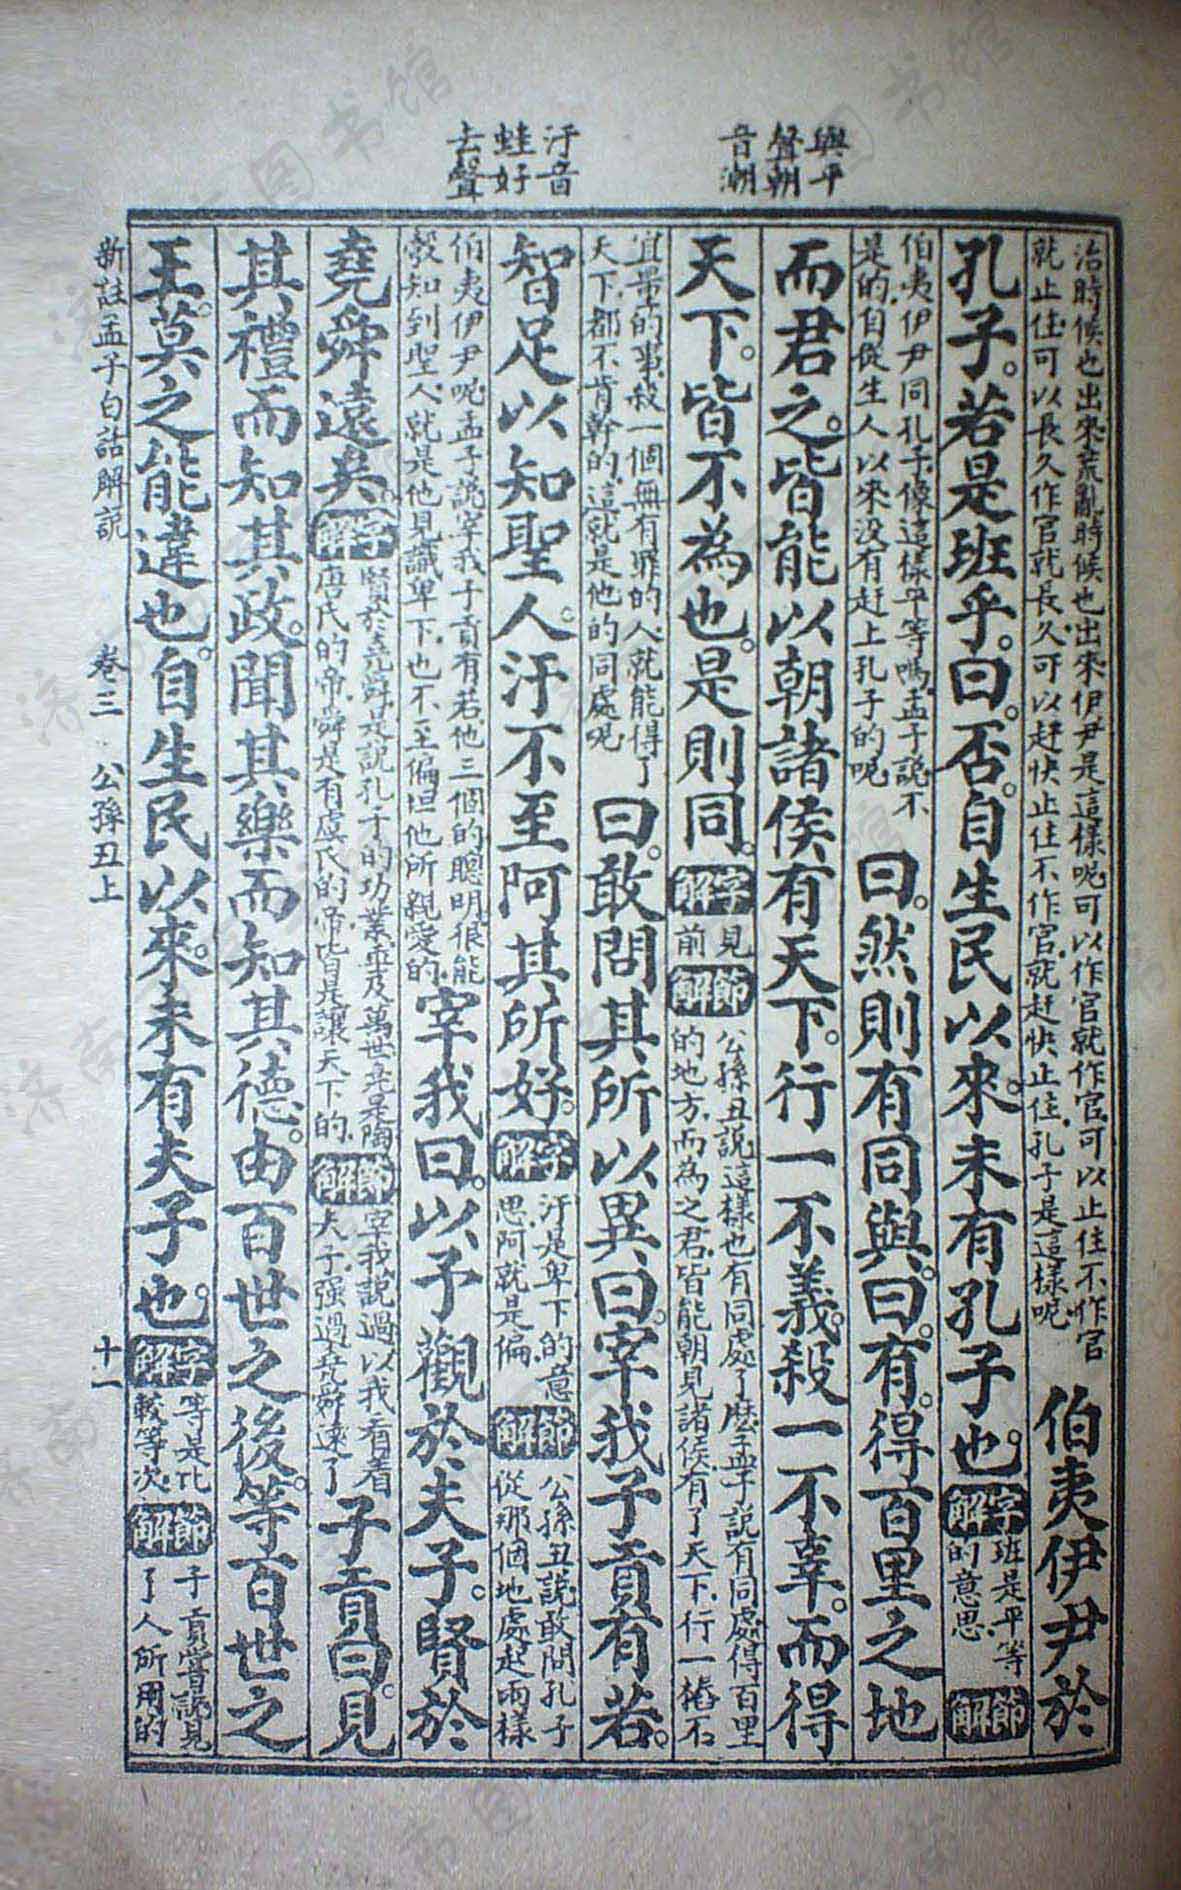 與平
聲朝
音潮
汙音
蛙好
去聲
治時候也出來荒亂時候也出來伊尹是這樣呢可以作官就作官可以止住不作官
就止住可以長久作官就長久可以赶快止住不作官就赶快止住孔子是這樣呢
伯夷伊尹於
孔子。若是班乎。曰。否。自生民以來。未有孔子也。
字解
班是平等
的意思
節解
伯夷伊尹同孔子像這樣平等嗎孟子說不
是的自從生人以來没有赶上孔子的呢
曰。然則有同與。曰。有。得百里之地
而君之。皆能以朝諸侯有天下。行一不義。殺一不辜。而得
天下。皆不為也。是則同。
字解
見
前
節解
公孫丑說這樣也有同處了麼孟子說有同處得百里
的地方而為之君皆能朝見諸侯有了天下行一樁不
宜當的事殺一個無有罪的人就能得了
天下都不肯幹的這就是他的同處呢
曰。敢問其所以異。曰。宰我子貢有若。
智足以知聖人。汙不至阿其所好。
字解
汙是卑下的意
思阿就是偏
節解
公孫丑說敢問孔子
從那個地處起兩樣
伯夷伊尹呢孟子說宰我子貢有若他三個的聰明很能
彀知到聖人就是他見識卑下也不至偏但他所親愛的
宰我曰。以予觀於夫子。賢於
堯舜遠矣。
字解
賢於堯舜是說孔子的功業並及萬世堯是陶
唐氏的帝舜是有虞氏的帝皆是讓天下的
節解
宰我說過以我看着
夫子強過堯舜遠了
子貢曰。見
其禮而知其政。聞其樂而知其德。由百世之後。等百世之
王。莫之能違也。自生民以來。未有夫子也。
字解
等是比
較等次
節解
子貢嘗說見
了人所用的
新註孟子白話解說 卷三 公孫丑上 十一